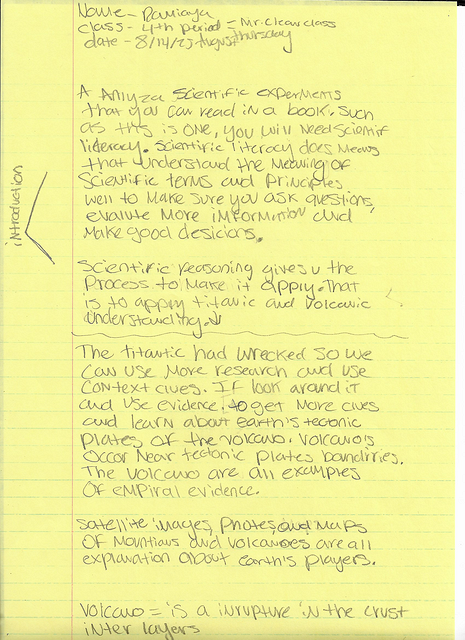 Name - Damiaya
class - 4th period = Mr. Clean class
date - 8/14/23 August thursday
A Anlyza Scientific experments
that you can read in a book. Such
as this is one, you will need scientif
literacy. Scientific literacy does means
that understand the meaning of
Scientific terms and principles
well to make sure you ask questions,
evalute more imformation and
make good desicions.
introduction
Scientific reasoning gives u the
process to make it apply. That
is to apply titanic and volcanic
understanding.
The titantic had wrecked so we
can use more research and use
context clues. If look around it
and use evidence, to get more clues
and learn about earth's tectonic
plates of the volcano. volcano's
occor near tectonic plates boundiries.
The volcano are all examples
of empiral evidence.
satellite images, photes, and maps
of mountians and volcanoes are all
explanation about earth's players.
volcano = is a inrupture in the crust
inter layers